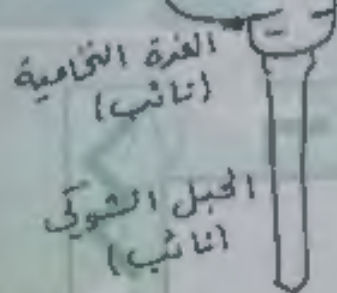 الغدة النخامية
(نائب)
الحبل الشوكي
(نائب)